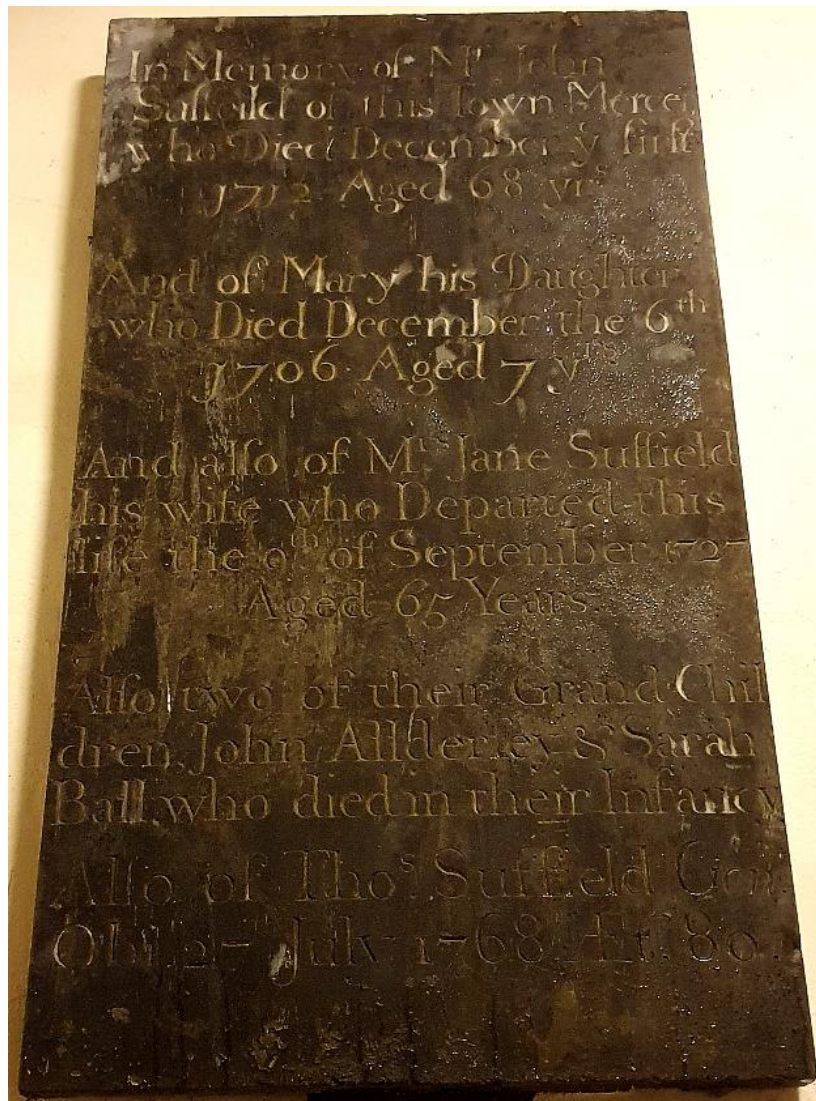 In Memory of Mr. John
Suffeild of this Town Mercer
who Died December ye first
1712 Aged 68 yrs
And of Mary his Daughter
who Died December the 6th
1706 Aged 7 yrs
And alſo of Mrs Jane Suffield
his wife who Departed this
life the 9th of September 1727
Aged 65 Years.
Alſo two of their Grand Chil
dren, John Allderley & Sarah
Ball who died in their Infancy
Alſo of Thos. Suffield Gent.
Obit July 1768 Æt. 80.